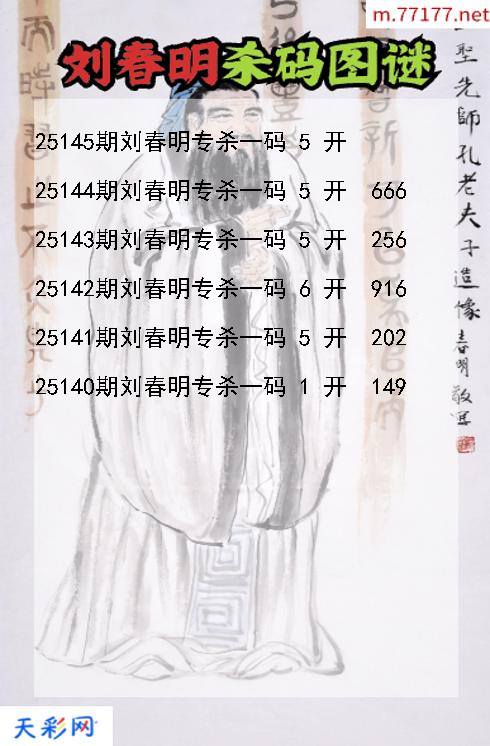 m.77177.net
刘春明杀码图谜
25145期刘春明专杀一码 5 开
25144期刘春明专杀一码 5 开 666
25143期刘春明专杀一码 5 开 256
25142期刘春明专杀一码 6 开 916
25141期刘春明专杀一码 5 开 202
25140期刘春明专杀一码 1 开 149
聖先師孔老夫子造像春明敬寫
天彩网